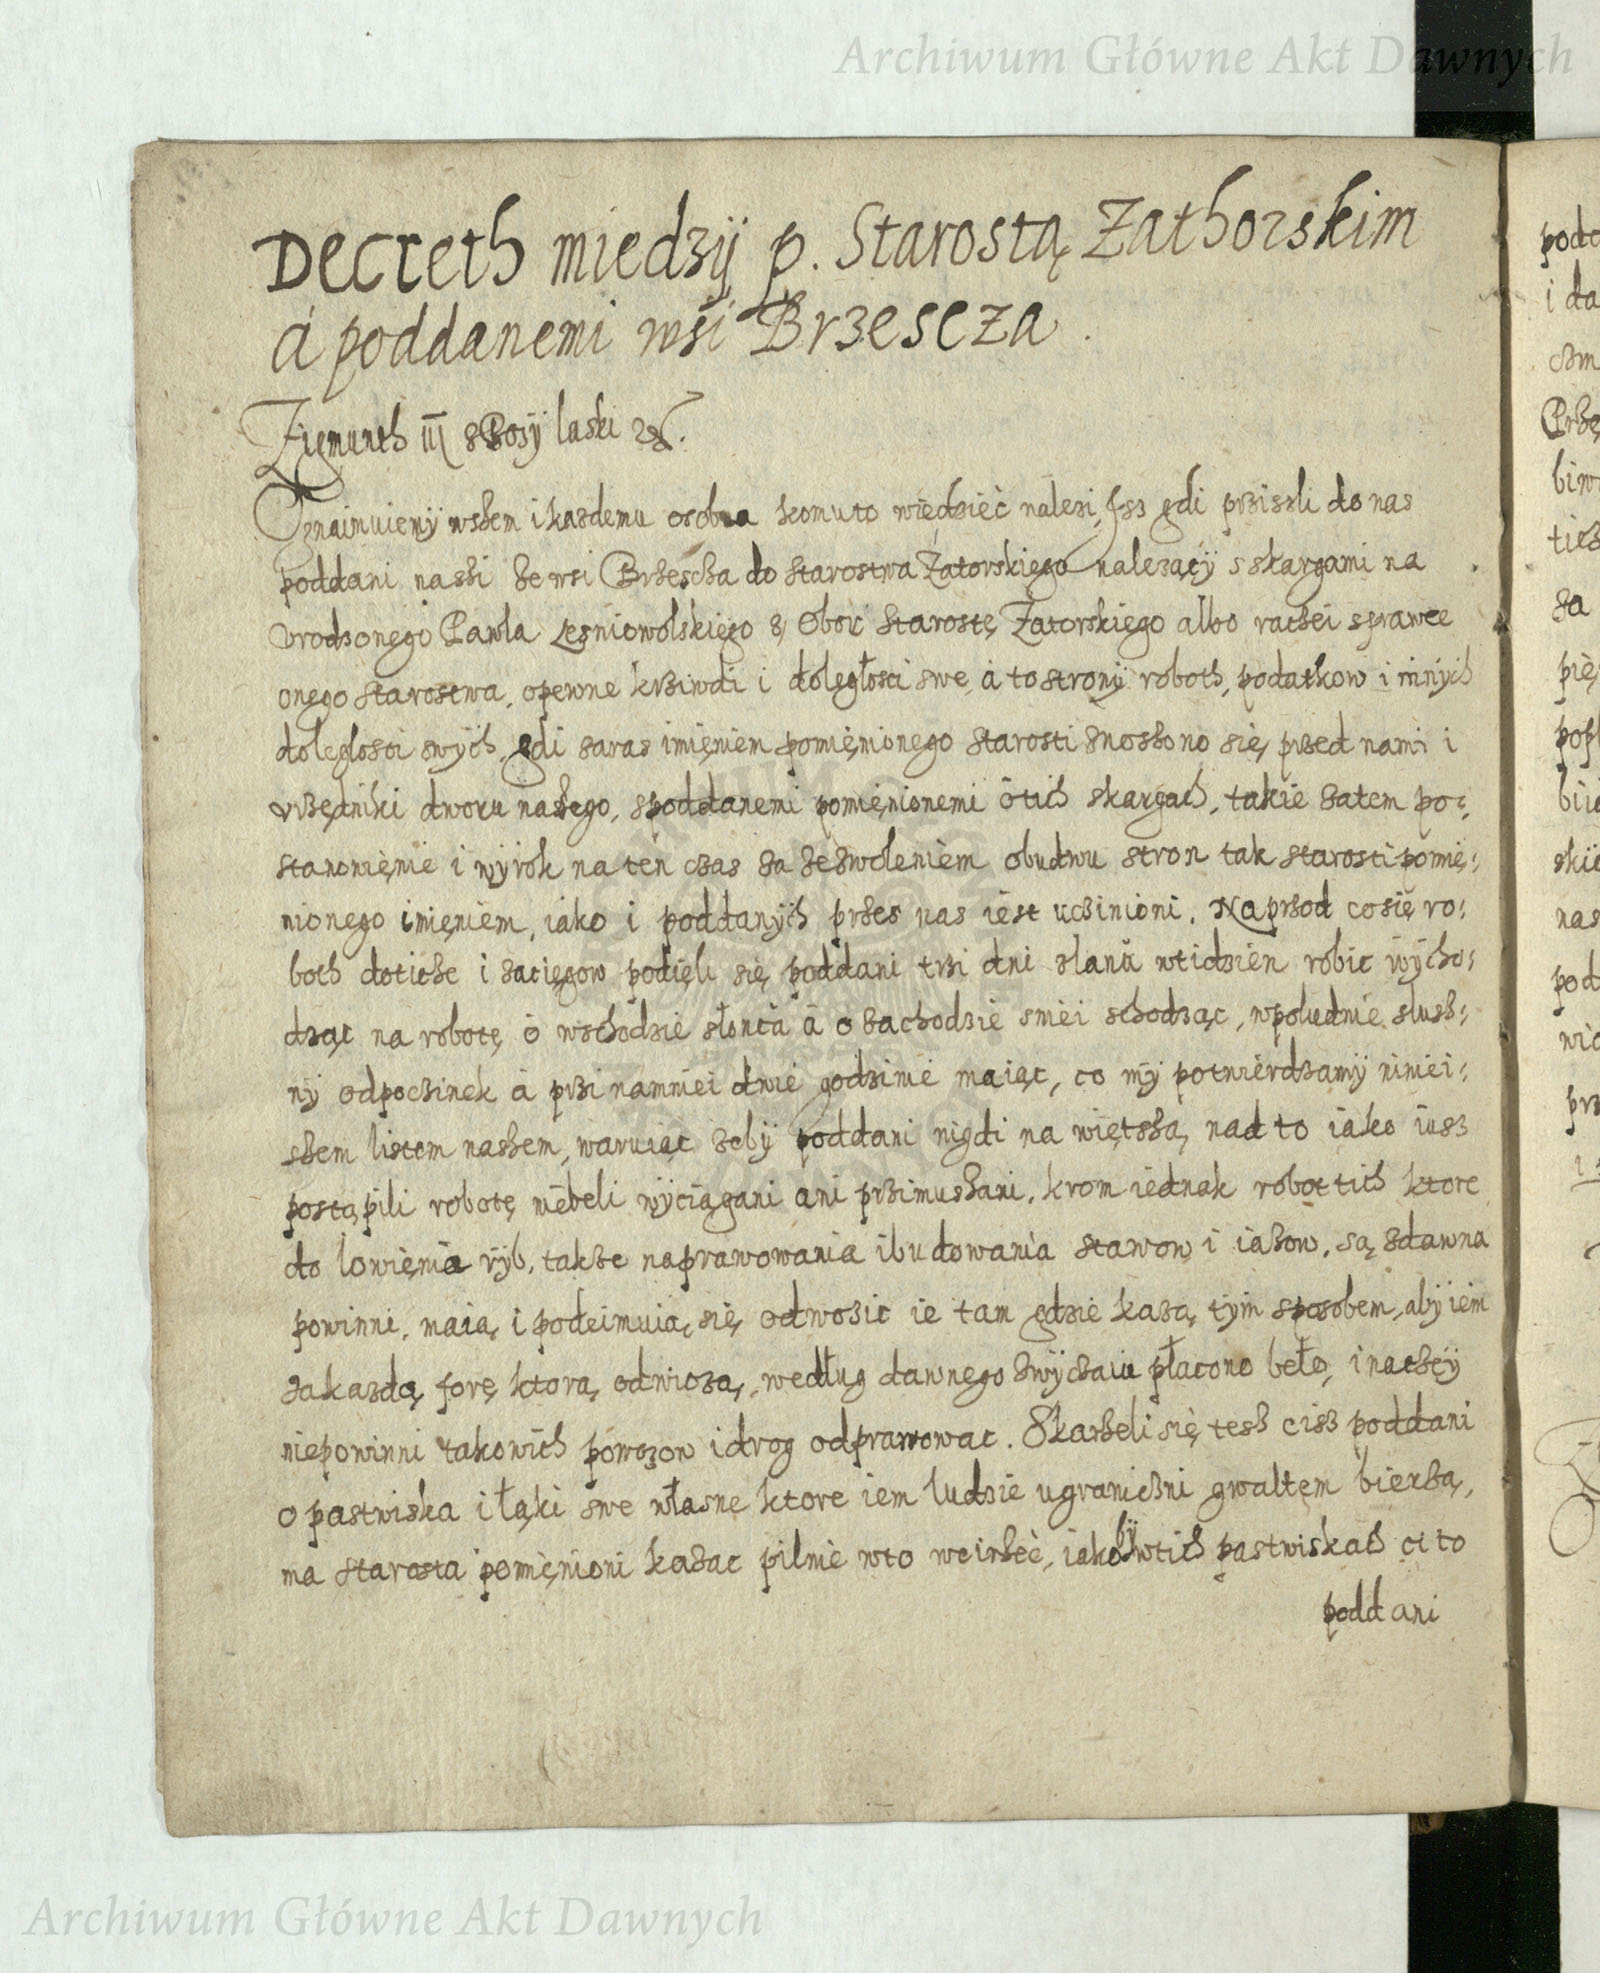 Archiwum Główne Akt Dawnych
Decreth miedzÿ p. Starostą Zathorskim
á poddanemi wśi Brzescza.
Zigmunth III z Bozÿ laski
Oznaimuiemÿ wszem i kazdemu osobna komu to wiedziec nalezi, Isz gdi prziszli do nas
poddani naszi ze wsi Brzescza do starostwa Zatorskiego nalezącÿ s skargami na
vrodzonego Pawla Lesniowolskiego z Obor starostę Zatorskiego albo raczei sprawce
onego starostwa, o pewne krziwdi i dolęgłosci swe, á to stronÿ roboth, podatkow i innÿch
dolęglosci swÿch, gdi zaraz imięniem pomięnionego starosti znoszono się przed nami i
vrzędniki dworu naszego, s poddanemi pomięnionemi o tich skargach, takie zatem po-
stanowięnie i wÿrok na ten czas za zezwoleniem obudwu stron tak starosti pomię-
nionego imięniem, iako i poddanÿch przes nas iest uczinioni. Naprzod co się ro-
both doticze i zacięgow podięli się poddani trzi dni z lanu w tidzien robic wÿcho-
dząc na robotę o wschodzie słonca á o zachodzie s niei schodząc, w poludnie slusz-
nÿ odpoczinek á przinamniei dwie godzinie maiąc, co mÿ potwierdzamÿ niniei-
szem listem naszem, waruiąc zebÿ poddani nigdi na więtszą nad to iako iusz
postąpili robotę niebeli wÿciągani ani przimuszani, krom iednak robot tich ktore
do lowięnia rÿb, takze naprawowania i budowania stawow i iazow, są zdawna
powinni, maią i podeimuią się odwozic ie tam gdzie kazą tÿm sposobem, abÿ iem
za kazdą forę ktorą odwiozą, według dawnego zwÿczaiu płacono beło, inaczeÿ
niepowinni takowich powozow i drog odprawowac. Skarzeli się tesz cisz poddani
o pastwiska i łąki swe własne ktore iem ludzie ugraniczni gwaltem bierzą,
ma starosta pomięnioni kazac pilnie w to weirzeć, iakobÿ w tich pastwiskach ci to
poddani
Archiwum Główne Akt Dawnych